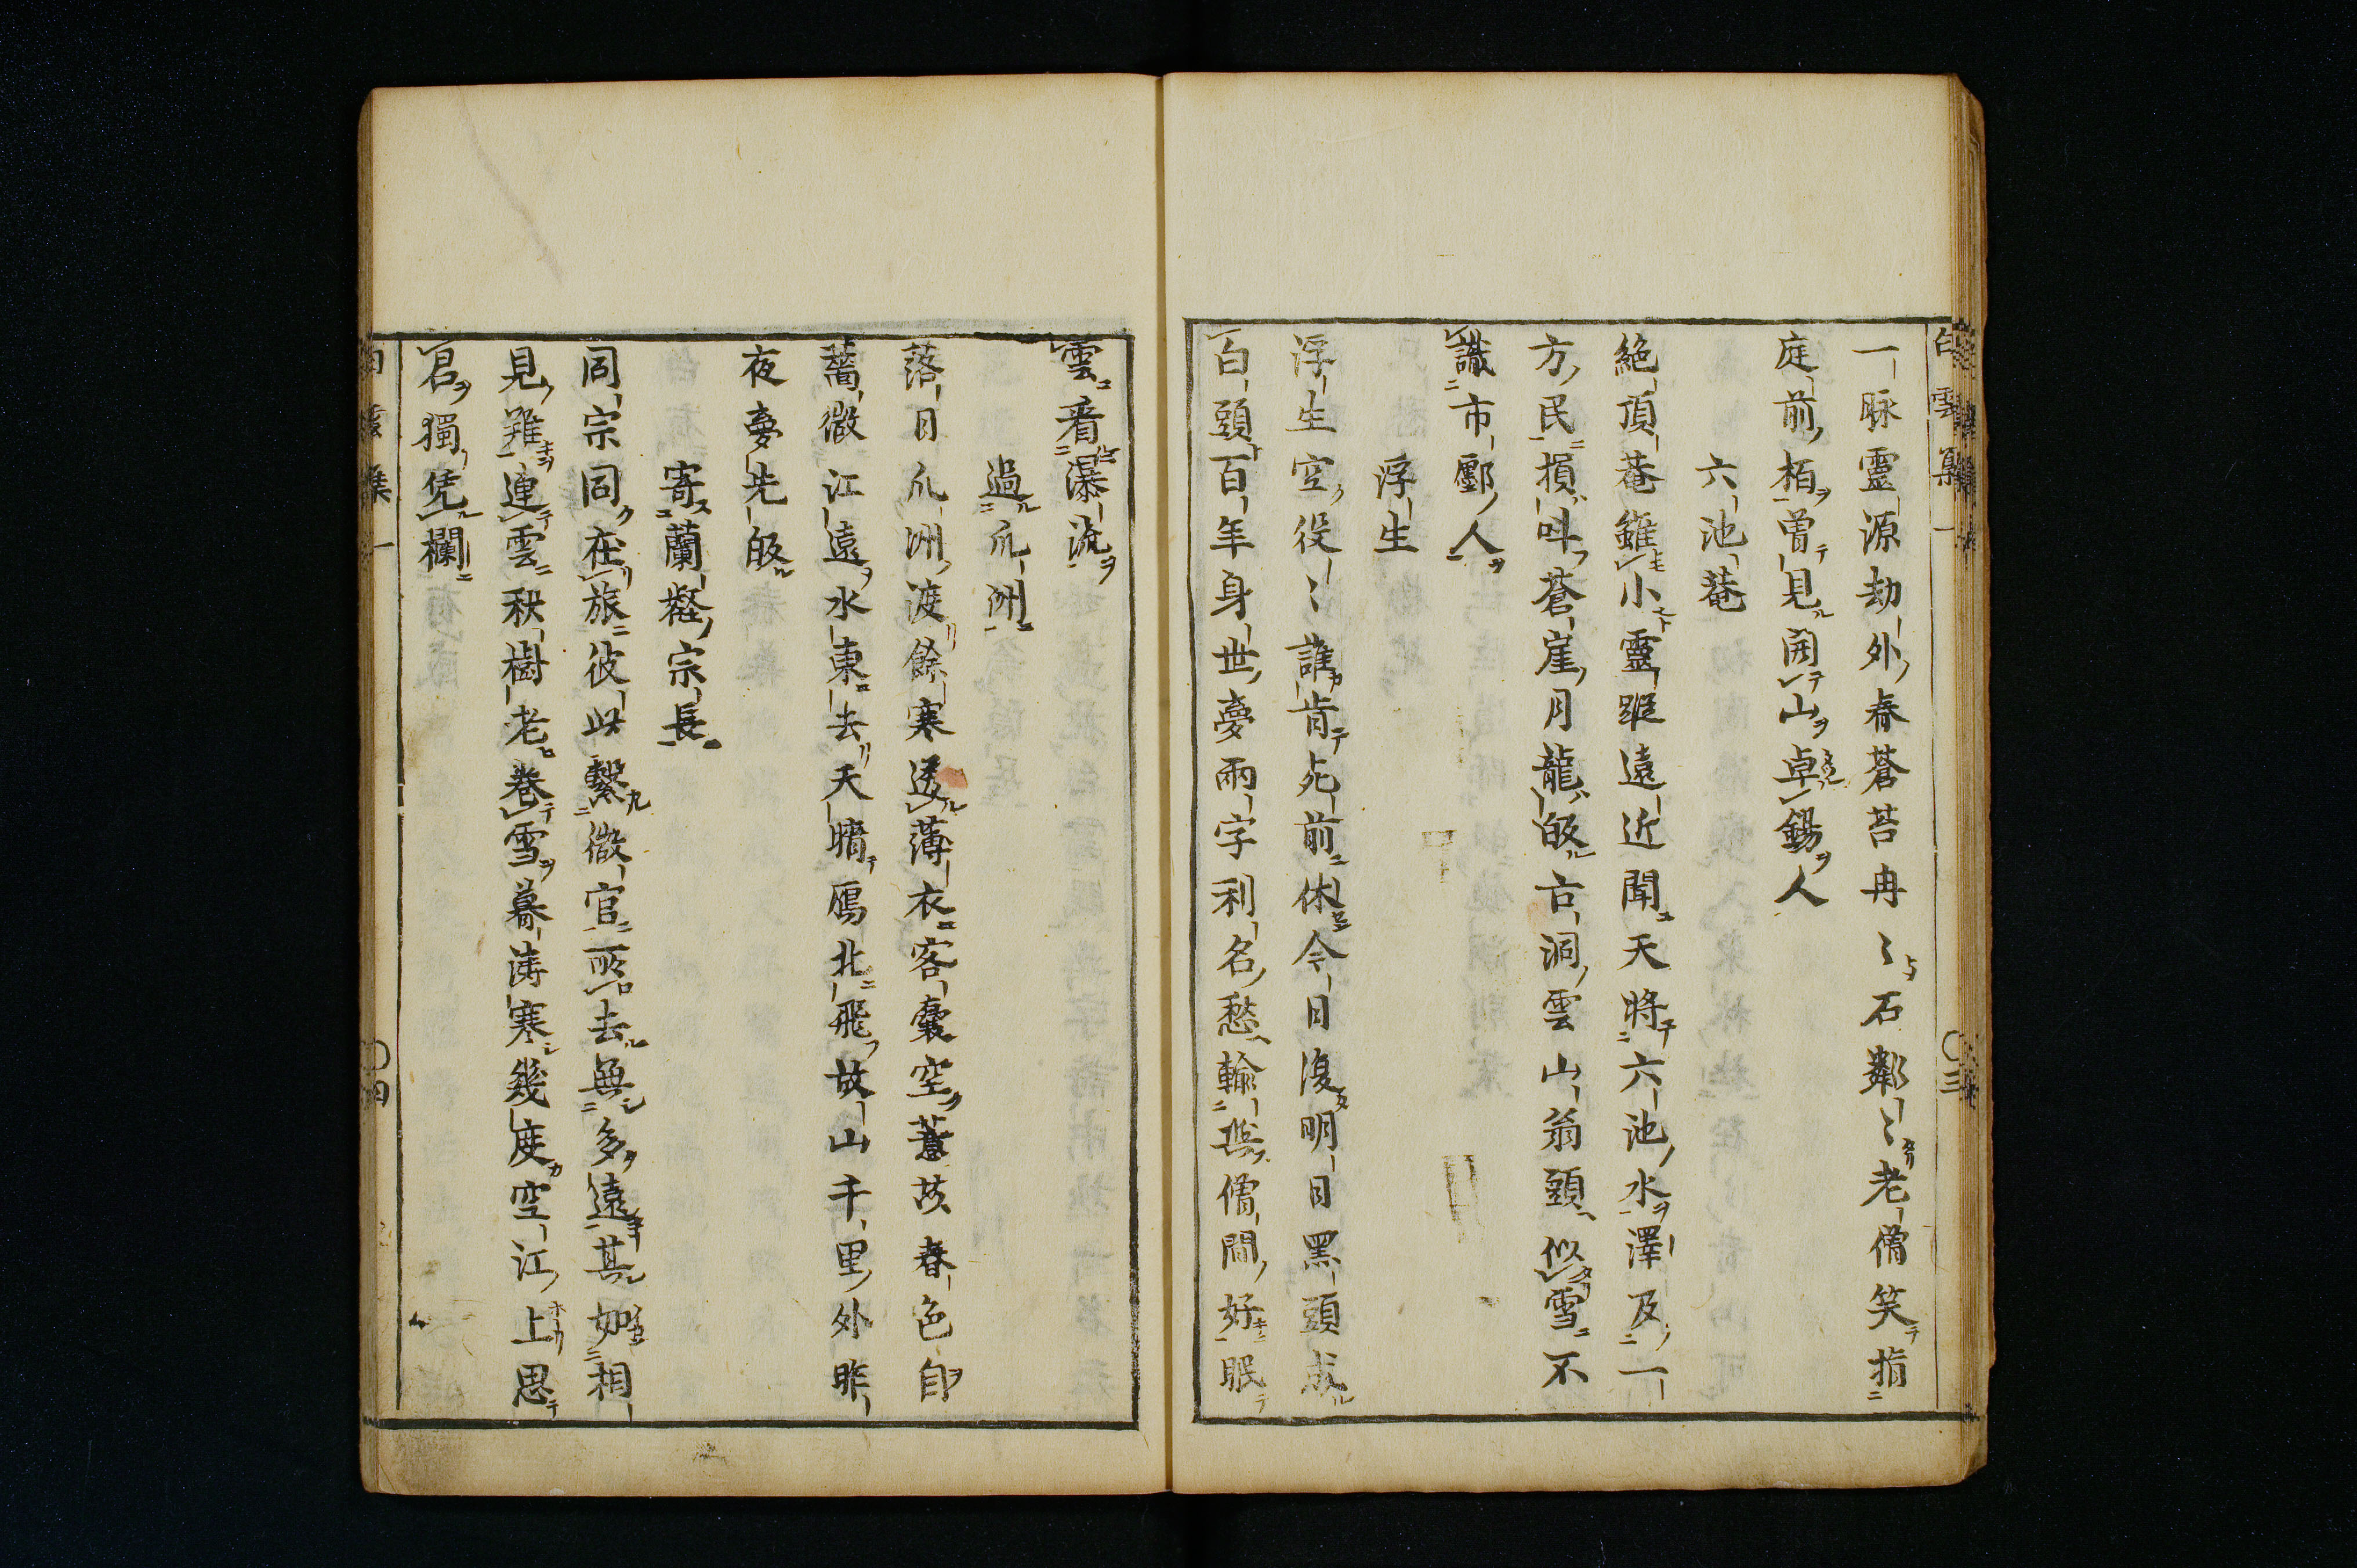 白雲集一 〇三
一脉靈源劫外春蒼苔冉〻石粼〻老僧笑指
庭前栢曽見開山卓錫人
六池菴
絶頂菴雖小靈蹤遠近聞天將六池水澤及一
方民損呌蒼崖月龍皈古洞雲山翁頭似雪不
識市鄽人
浮生
浮生空役〻誰肯死前休今日復明日黒頭成
白頭百年身世夢兩字利名愁輸与僧閒好眠
雲看瀑流
過瓜洲
落日瓜洲渡餘寒透薄衣客囊空薏苡春色自
薔薇江遠水東去天晴鴈北飛故山千里外昨
夜夢先皈
寄蘭壑宗長
同宗同在旅彼此繫微官所去無多遠其如相
見難連雲秋樹老巻雪暮濤寒幾度空江上思
君獨凭欄
白雲集一 〇四